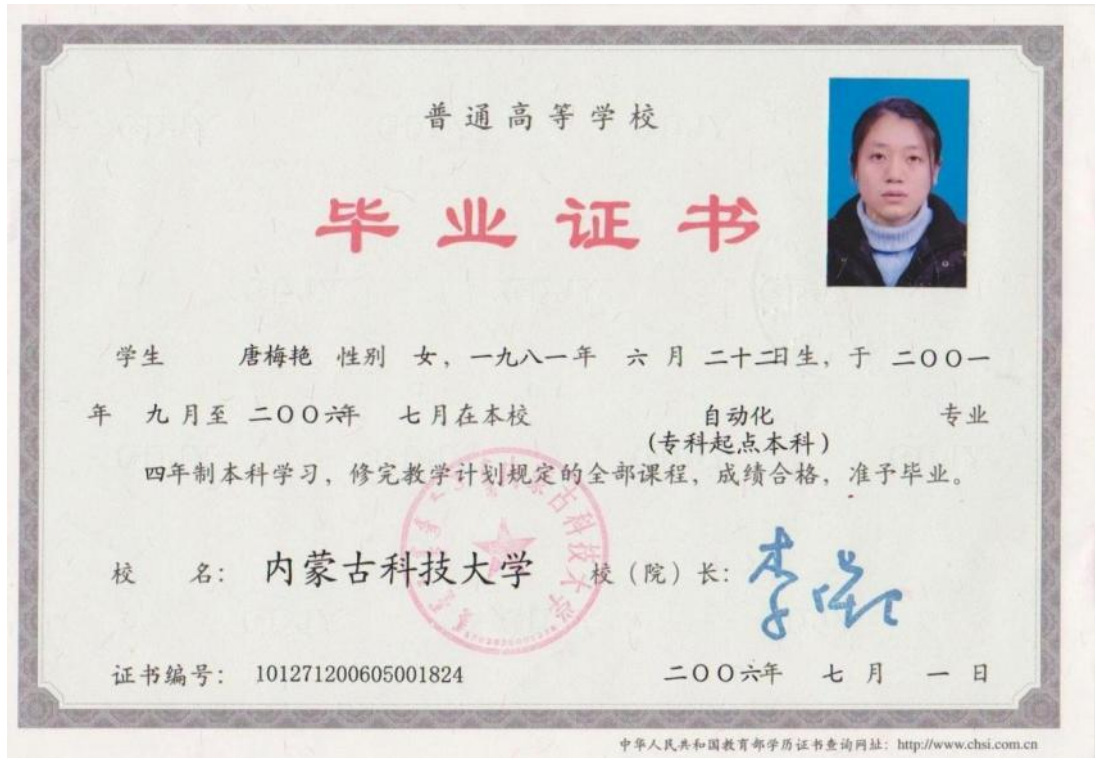 普通高等学校
毕业证书
学生 唐梅艳 性别 女，一九八一年 六 月 二十二日生，于 二〇〇一
年 九 月至 二〇〇六年 七 月在本校 自动化 专业
(专科起点本科)
四年制本科学习，修完教学计划规定的全部课程，成绩合格，准予毕业。
校 名： 内蒙古科技大学 校（院）长：
证书编号： 101271200605001824 二〇〇六年 七 月 一 日
中华人民共和国教育部学历证书查询网址：http://www.chsi.com.cn